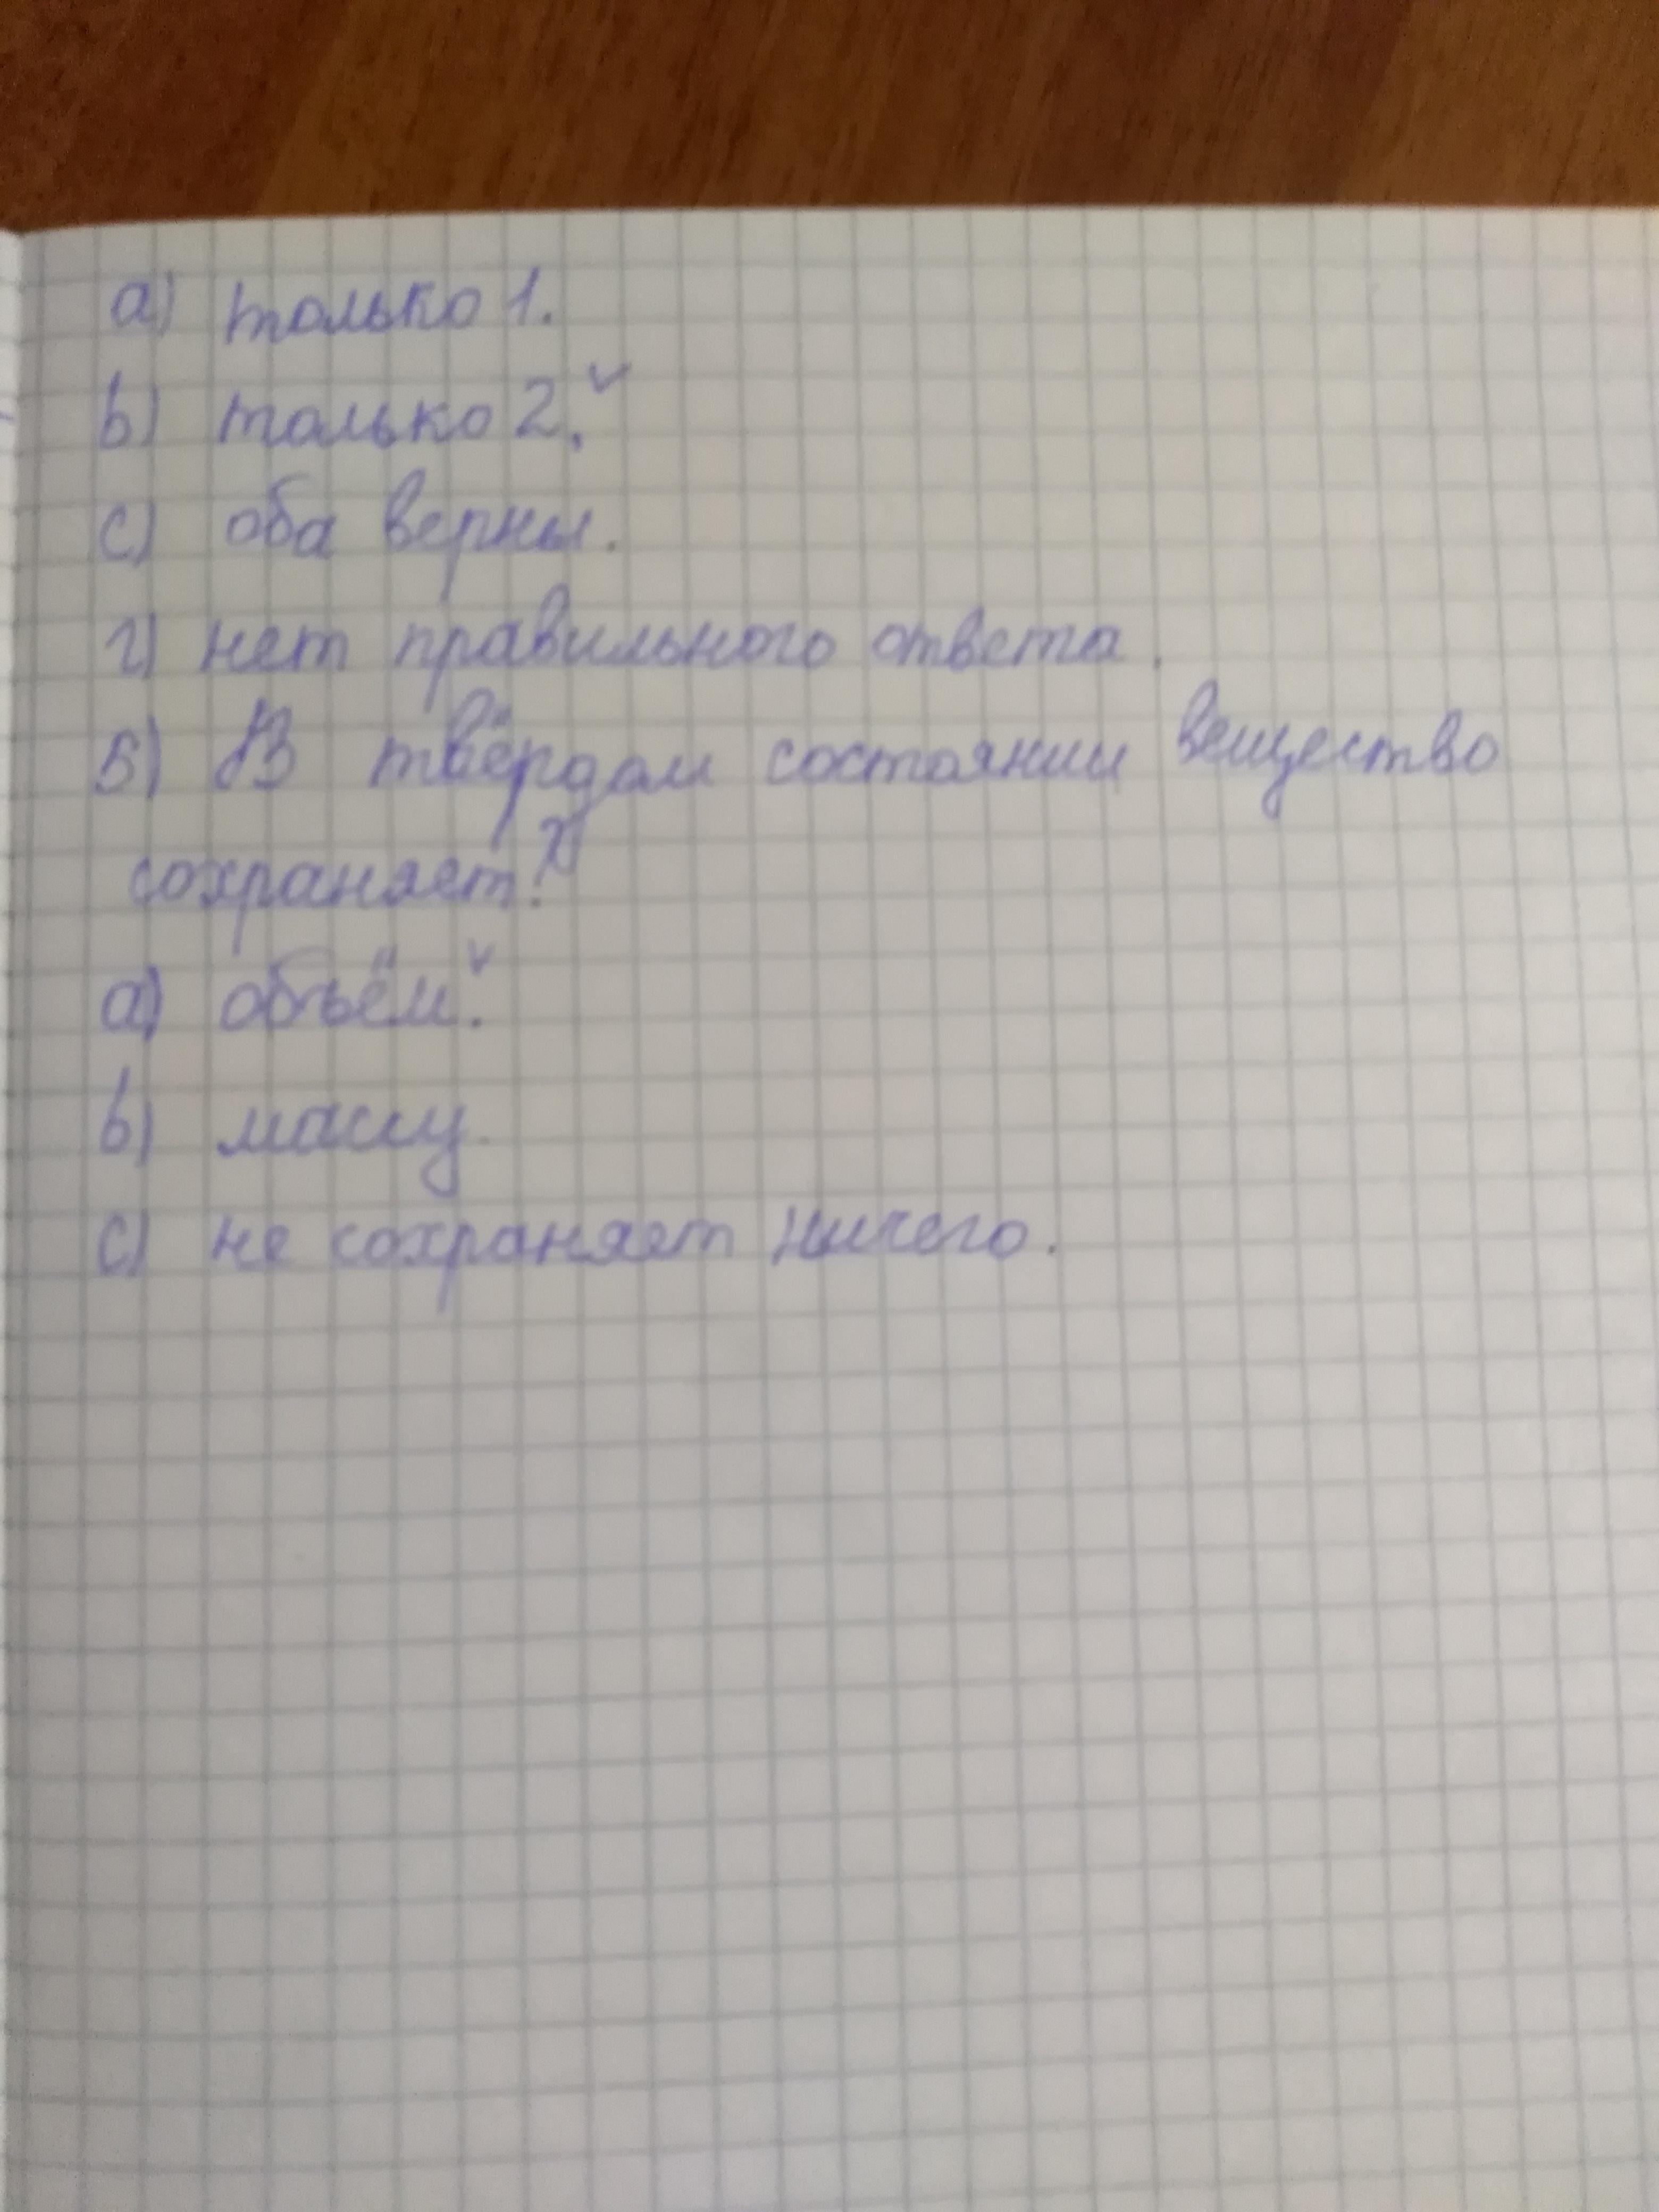 а) только 1.
b) только 2.
c) оба верны.
г) нет правильного ответа.
5) В твёрдом состоянии вещество
сохраняет:
а) объём.
b) массу
c) не сохраняет ничего.